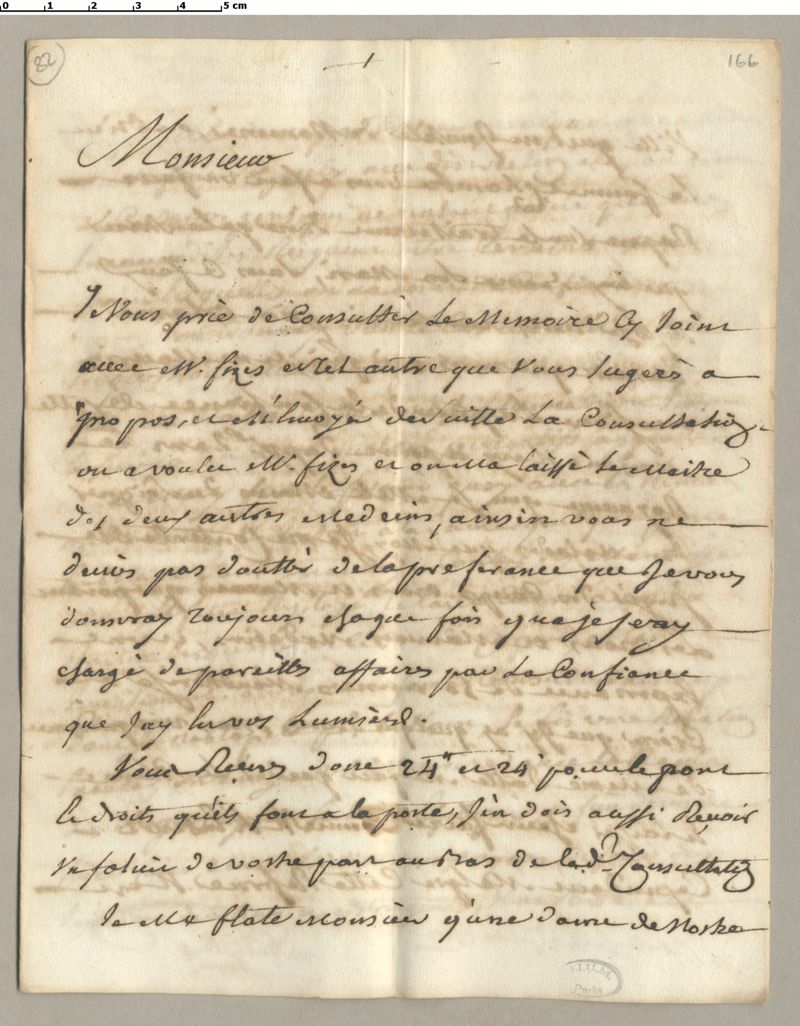 0 1 2 3 4 5 cm
82
166
Monsieur
Je Vous prie de Consulter Le Memoire Cy Joint
avec Mr. fizes et tel autre que Vous Jugerés a
propos, et M'Envoyér de suitte La Consultation
on a voulu Mr. fizes et on Ma laissé Le Maitre
des deux autres Medecins, ainsin vous ne
devés pas doutter de la preferance que Je vous
donneray toujours chaque fois que je seray
chargé de pareilles affaires par La Confiance
que J'ay En vos Lumieres.
Vous Recevrés donc 24 et 24 pour le port
Le droits qu'ils font a la poste, J'en dois aussi Recevoir
Un de vostre part au bas de lad. Consultation
Je Me flate Monsieur qu'une dame de Nostre
B.I.U.M.
Paris